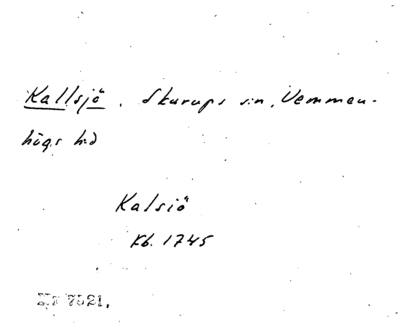 Kallsjö, Skurups sn, Vemmen-
högs hd
Kalsiö
Kb. 1745
7521.